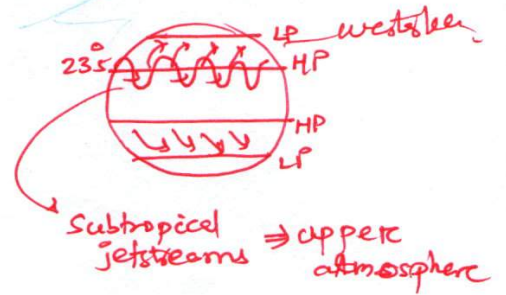 LP westerlies
23.5° HP
HP
LP
Subtropical ⇒ upper
jetstreams atmosphere